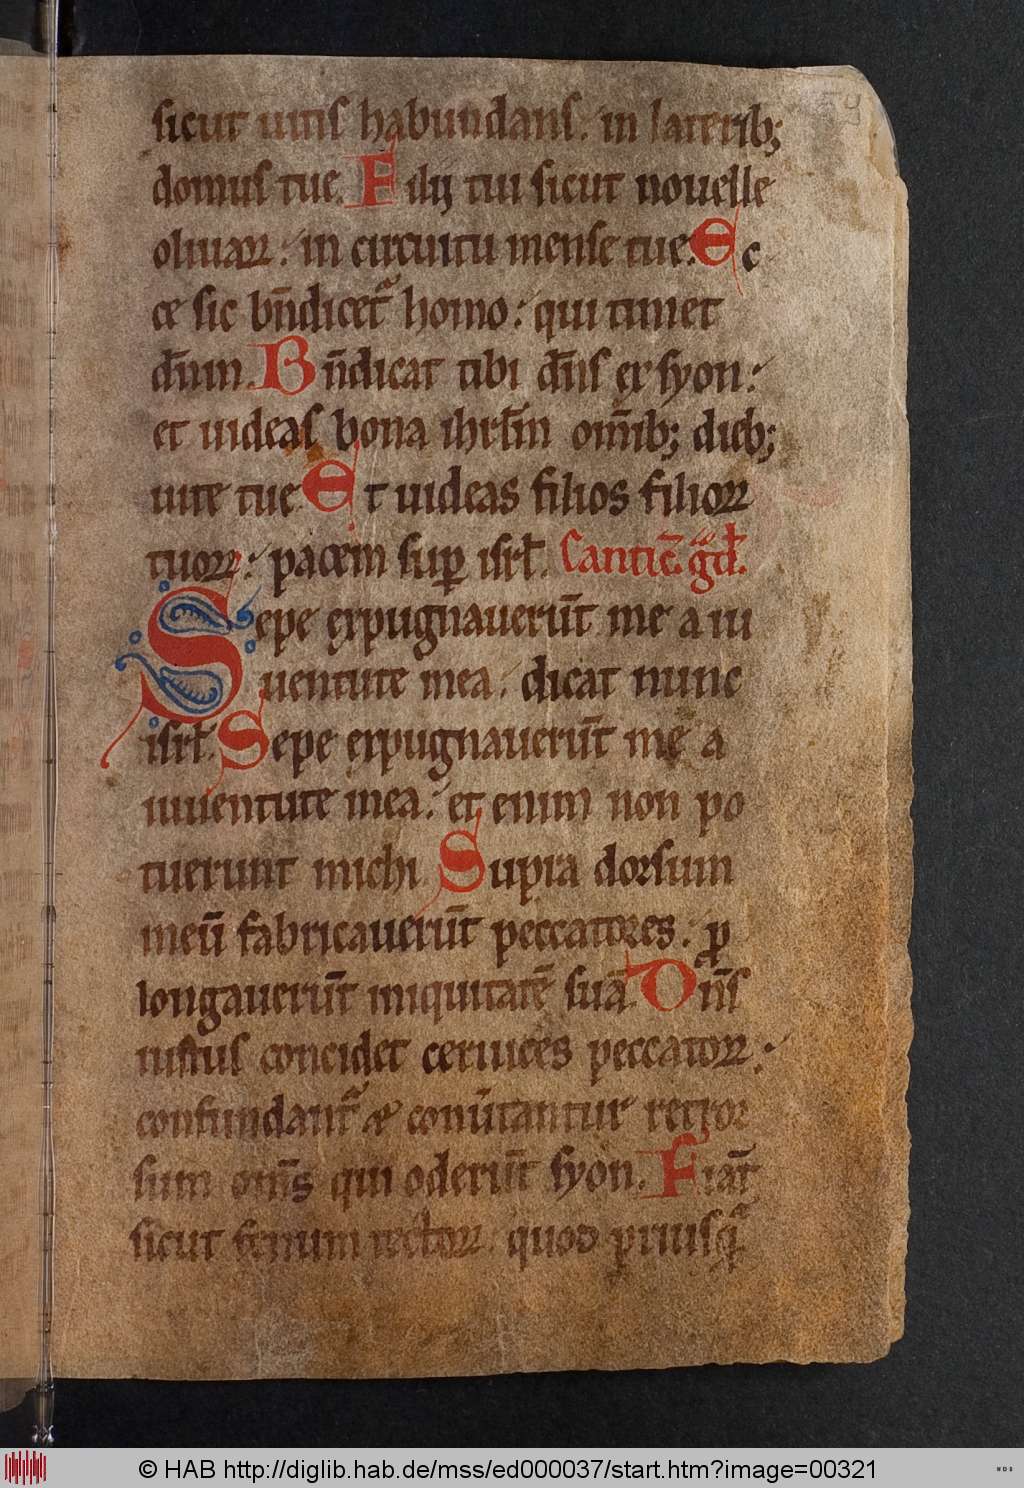 sicut uitis habundans. in laterib;
domus tue. Filij tui sicut nouelle
oliuaꝝ. in circuitu mense tue. Ec
ce sic bn̄dicet᷑ homo. qui timet
dn̄m. Bn̄dicat tibi dn̄s ex syon.
et uideas bona ihrl̄m om̄ib; dieb;
uite tue Et uideas filios filioꝝ
tuoꝝ. pacem suꝑ isrl̄. Cantic̄ gͣdͣ.
Sepe expugnauerūt me a iu
uentute mea. dicat nunc
isrl̄. Sepe expugnauerūt me a
iuuentute mea. et enim non po
tuerunt michi. Supra dorsum
meū fabricauerūt peccatores. ꝓ
longauerūt iniquitatē suā. Dn̄s
iustus concidet ceruices peccatoꝝ.
confundant᷑ & conūtantur retror
sum om̄s qui oderūt syon. Fiāt
sicut fenum tectoꝝ. quod priusqͣ
© HAB http://diglib.hab.de/mss/ed000037/start.htm?image=00321